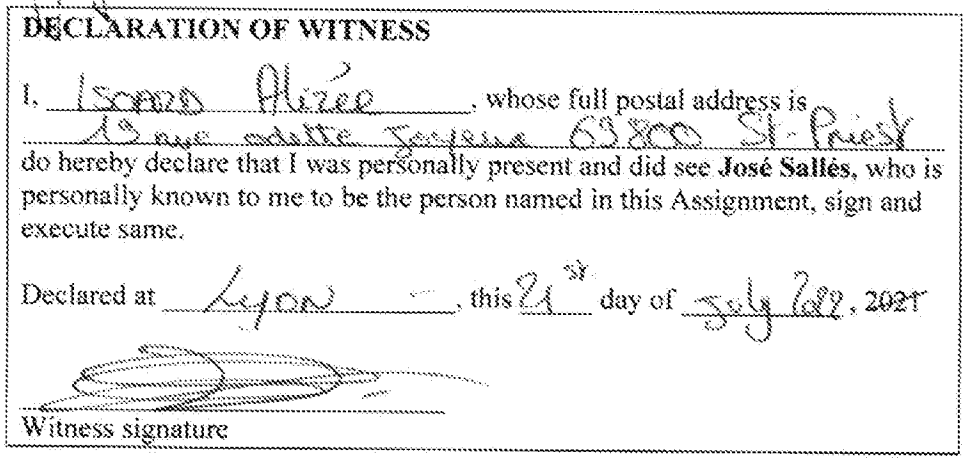 DECLARATION OF WITNESS
I, ISOARD Alizée, whose full postal address is
19 rue odette Joyeux 69800 St-Priest
do hereby declare that I was personally present and did see José Sallés, who is
personally known to me to be the person named in this Assignment, sign and
execute same.
Declared at Lyon, this 21st day of July 2022, 2021
Witness signature